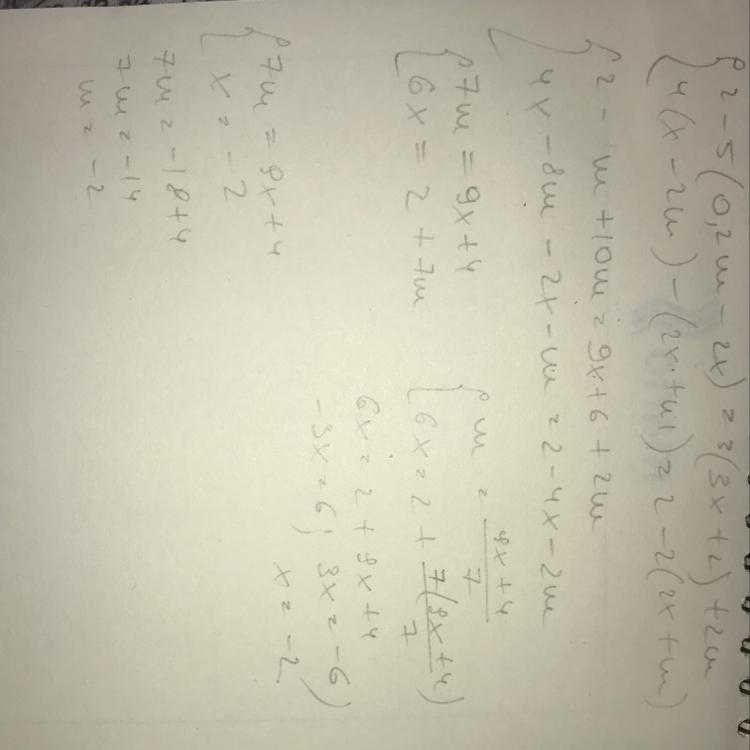 { 2 - 5(0,2m - 2x) = 3(3x + 2) + 2m
{ 4(x - 2m) - (2x + m) = 2 - 2(2x + m)
{ 2 - m + 10m = 9x + 6 + 2m
{ 4x - 8m - 2x - m = 2 - 4x - 2m
{ 7m = 9x + 4
{ 6x = 2 + 7m
{ m = (9x + 4)/7
{ 6x = 2 + 7(9x + 4)/7
6x = 2 + 9x + 4
-3x = 6; 3x = -6)
x = -2
{ 7m = 9x + 4
{ x = -2
7m = -18 + 4
7m = -14
m = -2